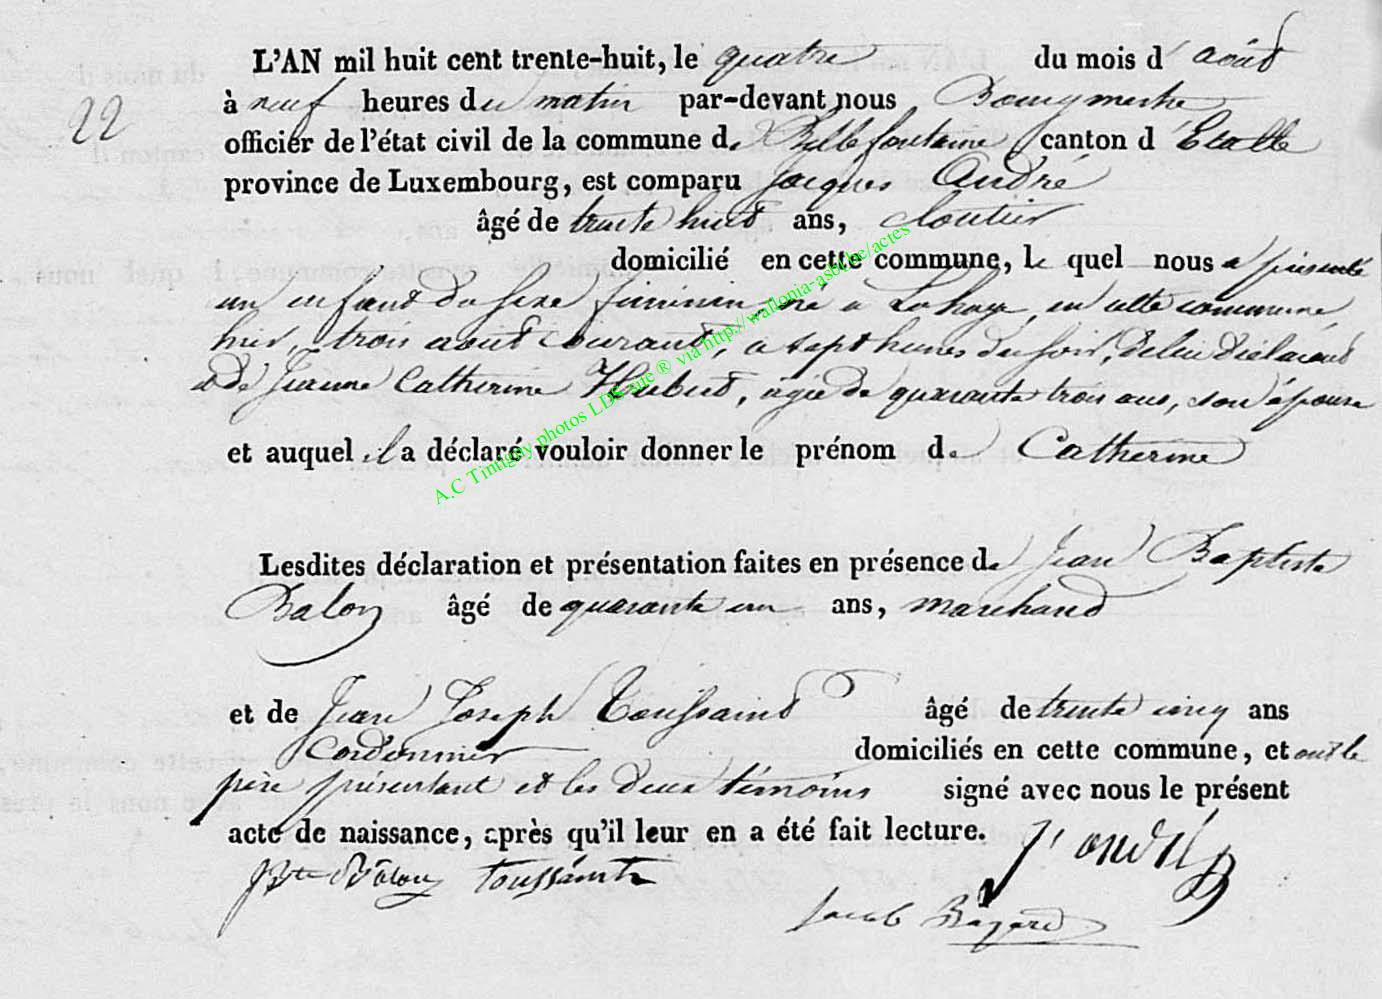 L'AN mil huit cent trente-huit, le quatre du mois d'août
22
à neuf heures du matin par-devant nous Bourgmestre
officier de l'état civil de la commune de Bellefontaine canton d'Etalle
province de Luxembourg, est comparu Jacques André
âgé de trente huit ans, cloutier
domicilié en cette commune, le quel nous a présenté
un enfant du sexe féminin, né a Lahage, en cette commune,
hier, trois août courant, a sept heures du soir, de lui déclarant
& de Jeanne Catherine Hubert, agée de quarante trois ans, son épouse
et auquel il a déclaré vouloir donner le prénom de Catherine
Lesdites déclaration et présentation faites en présence de Jean Baptiste
Balon âgé de quarante un ans, marchand
et de Jean Joseph Toussaint âgé de trente cinq ans
Cordonnier domiciliés en cette commune, et ont le
père présentant et les deux témoins signé avec nous le présent
acte de naissance, après qu'il leur en a été fait lecture.
J andré
JBte Balon Toussaint
Jacob
A.C Tintigny photos LDS sue ® via http://wallonia-asbl.be/actes